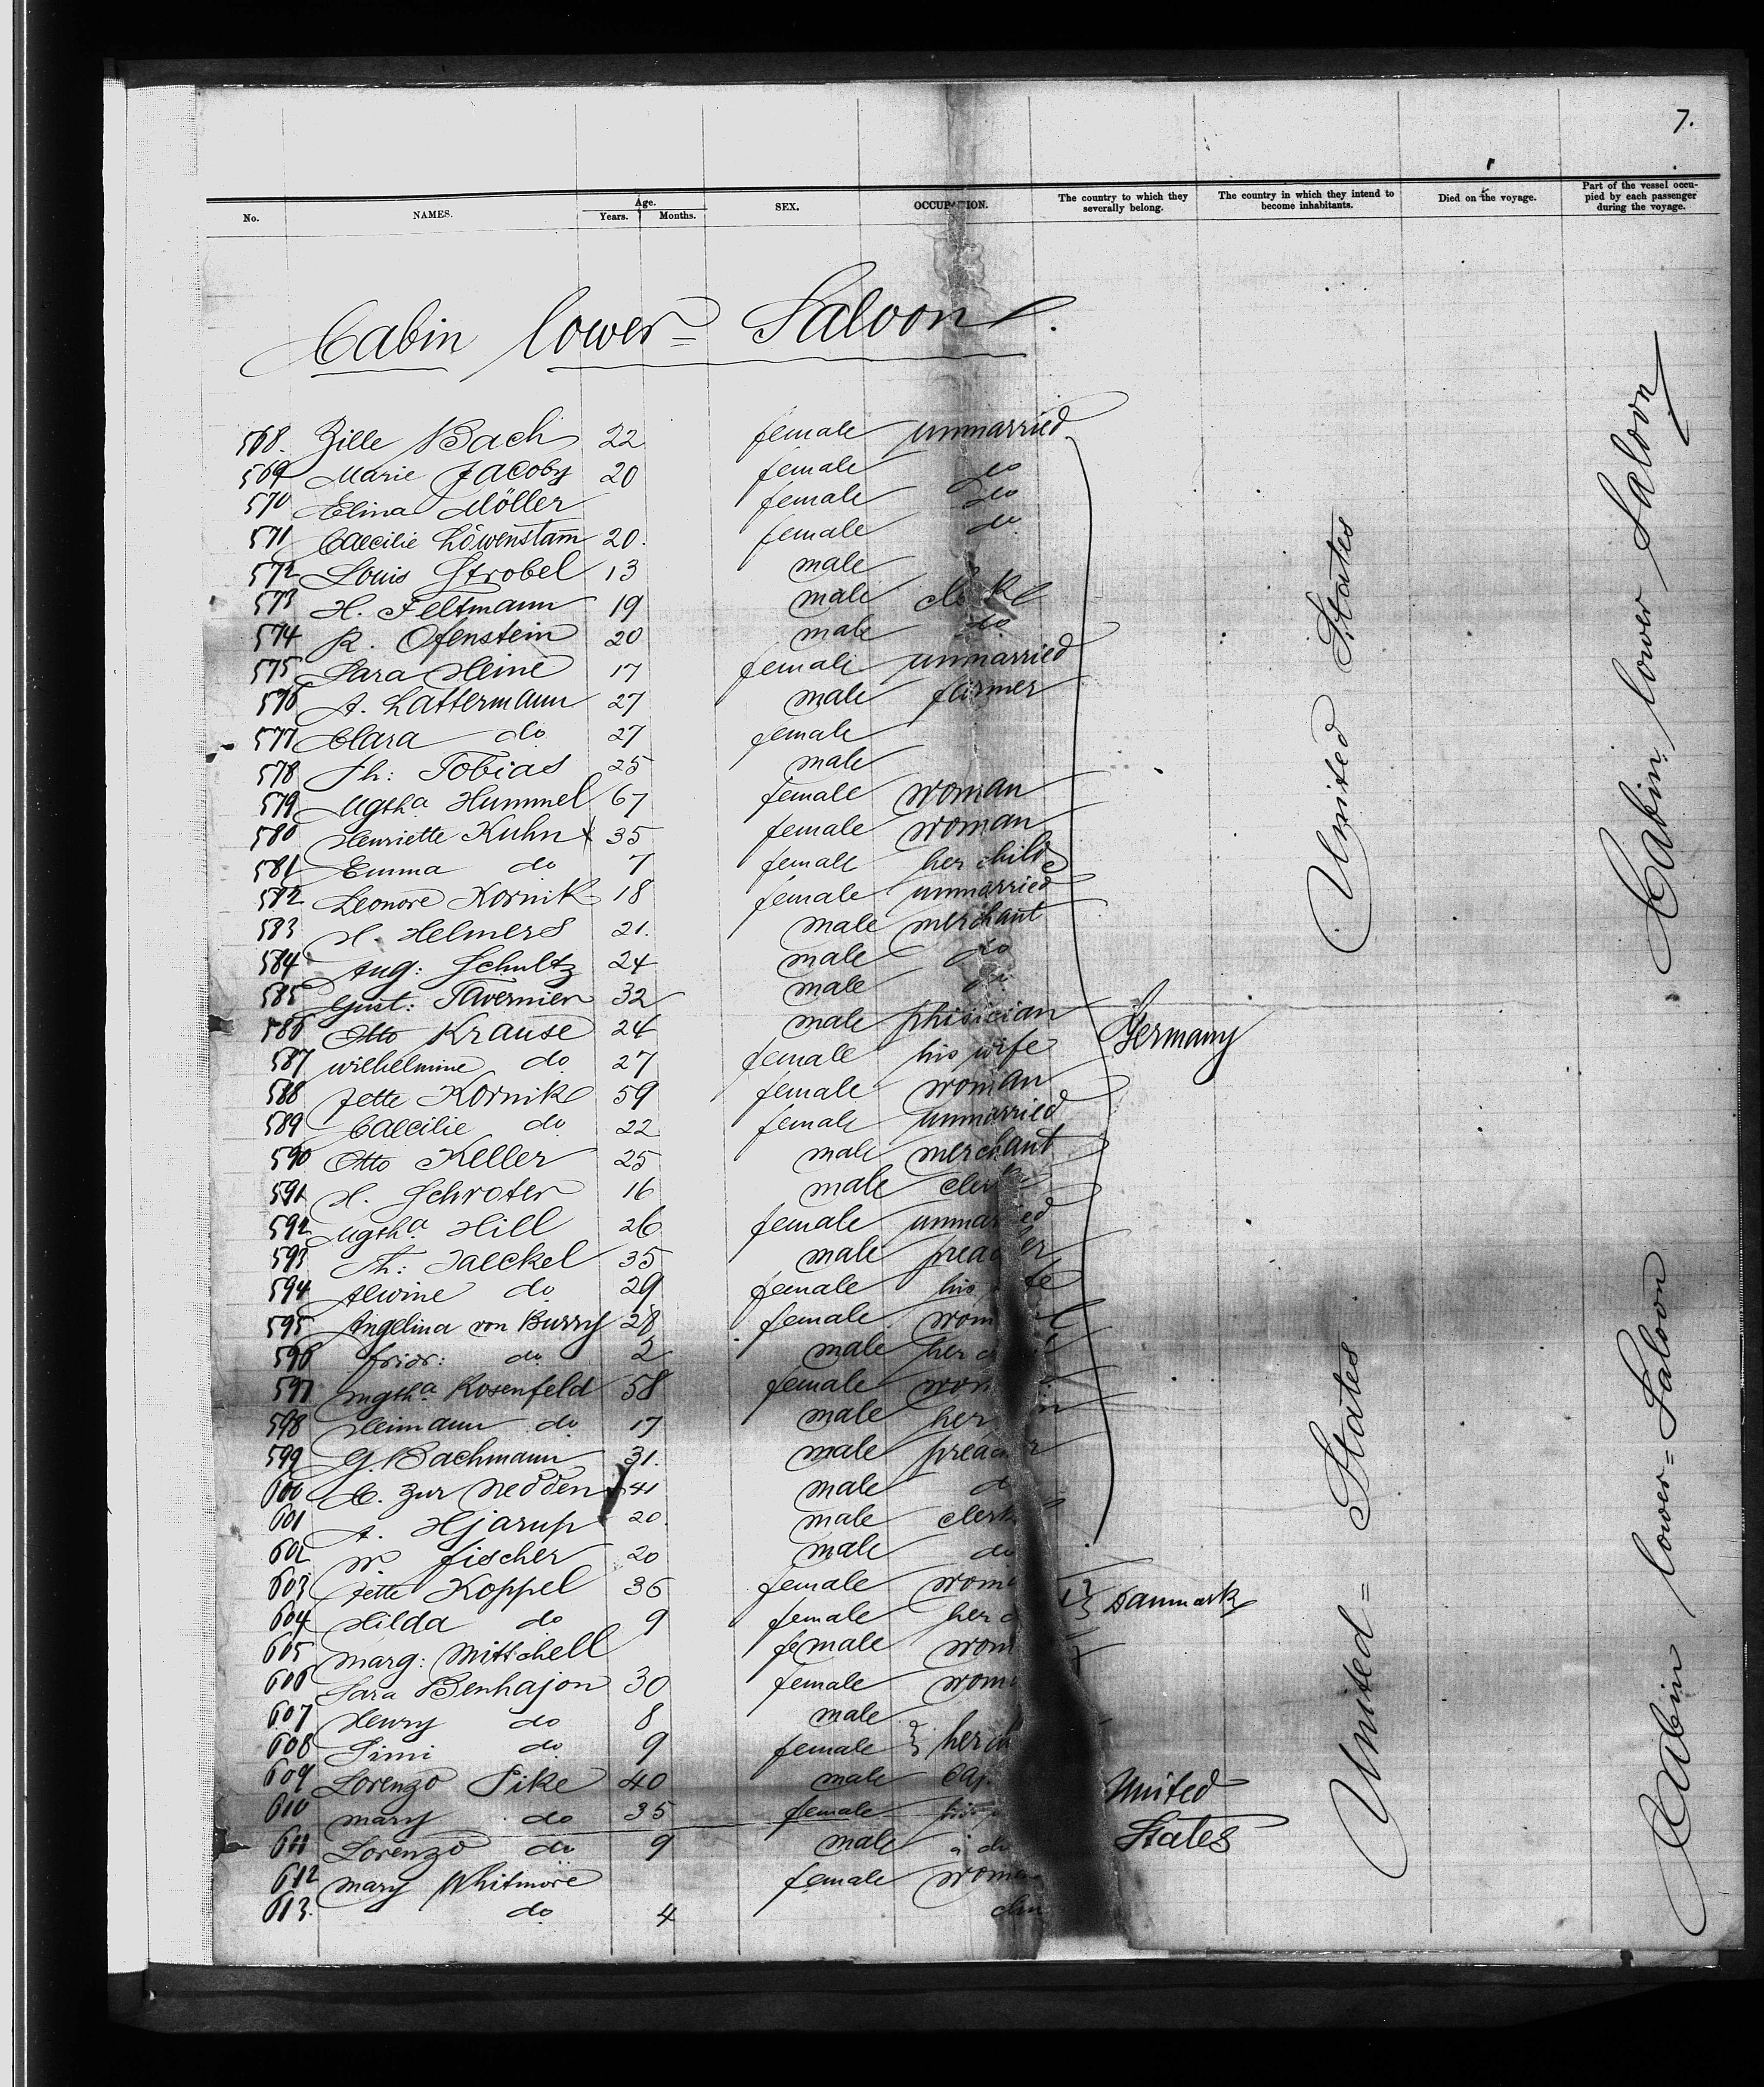 7.
No. NAMES. Age. Years. Months. SEX. OCCUPATION. The country to which they severally belong. The country in which they intend to become inhabitants. Died on the voyage. Part of the vessel occupied by each passenger during the voyage.
Cabin lower = Saloon.
568. Zille Bach 22 female unmarried
569 Marie Jacoby 20 female do
570 Elina Möller female do
571 Caecilie Löwenstam 20. female do
572 Louis Strobel 13 male
573 H. Feltmann 19 male clerk
574 R. Ofenstein 20 male do
575 Sara Heine 17 female unmarried
576 A. Lattermann 27 male farmer
577 Clara do 27 female
578 Th: Tobias 25 male
579 Magtha Hummel 67 female woman
580 Henriette Kuhn 35 female woman
581 Emma do 7 female her child
582 Leonore Kornik 18 female unmarried
583 H. Helmers 21. male merchant
584 Aug: Schultz 24 male do
585 Gust: Tavernier 32 male do
586 Otto Krause 24 male phisician
587 Wilhelmine do 27 female his wife
588 Jette Kornik 59 female woman
589 Caecilie do 22 female unmarried
590 Otto Keller 25 male merchant
591 H. Schroter 16 male clerk
592 Magtha Hill 26 female unmarried
593 Th: Jaeckel 35 male preacher
594 Alwine do 29 female his wife
595 Angelina von Burry 28 female woman
596 Fridr: do 2 male her child
597 Mgtha Rosenfeld 58 female woman
598 Heimann do 17 male her son
599 G. Bachmann 31. male preacher
600 C. zur Nedden 41 male do
601 A. Hjarup 20. male clerk
602 W. Fischer 20 male do
603 Jette Koppel 36 female woman
604 Hilda do 9 female her
605 Marg: Mittchell female woman
606 Sara Benhajon 30 female woman
607 Henry do 8 male
608 Simi do 9 female her ch
609 Lorenzo Pike 40 male cap
610 Mary do 35 female his
611 Lorenzo do 9 male
612 Mary Whitmore female woman
613. do 4
Germany
Danmark
United States
United States
United = States
Cabin, lower Saloon
Cabin lower = Saloon